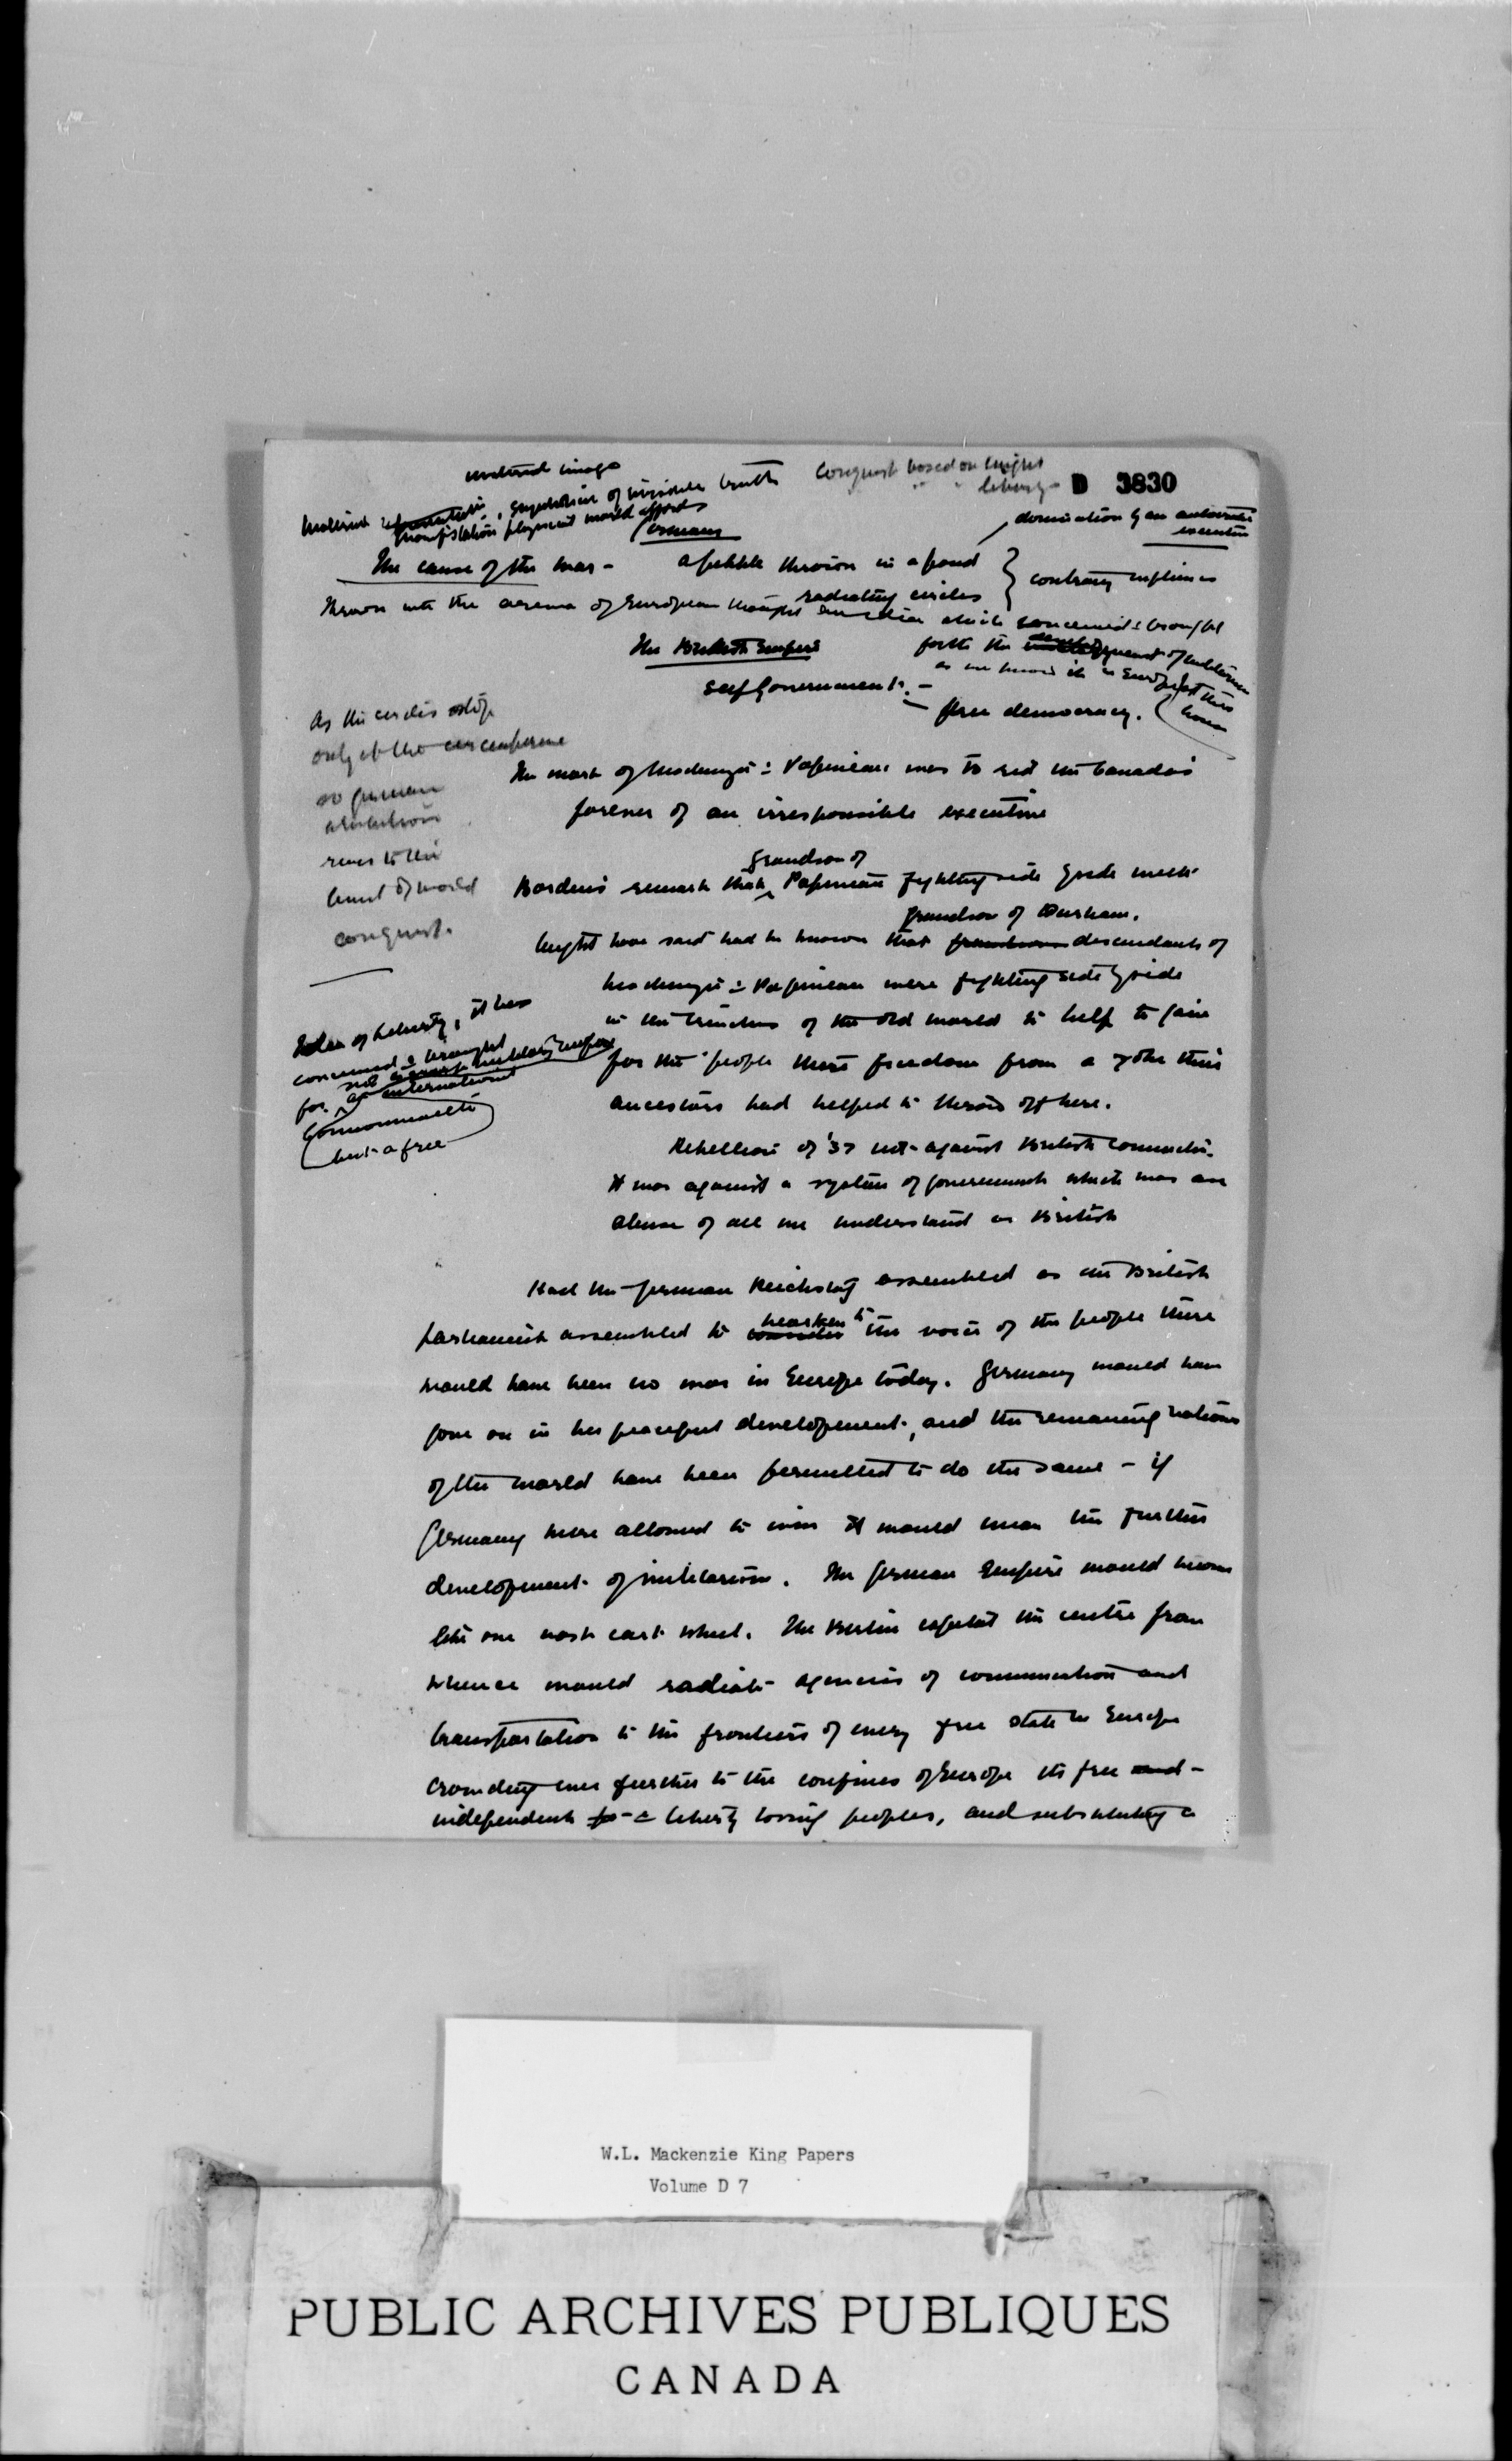 material image
Conquest based on might
" " liberty
D 3830
material of invisible truth
physical world affords
domination by an autocratic
executive
Germany
The cause of the war - a pebble thrown in a pond
radiating circles
contrary
Thrown into the arena of European thought an idea which conceived & brought
forth the development of militarism
as we know it in Europe at this
hour
The British Empire
Self Government. -
free democracy.
As the circles stop
only at the circumference
so German
ambition
runs to the
limit of world
conquest.
Idea of liberty, it has
conceived & brought
not a military empire
for an international
Commonwealth
but a free
The work of Mackenzie & Papineau was to rid the Canadas
forever of an irresponsible executive
grandson of
Borden's remark that Papineau fighting side by side with
grandson of Durham.
Might have said had he known that descendants of
Mackenzie & Papineau were fighting side by side
in the trenches of the old world to help to gain
for the people there freedom from a yoke their
ancestors had helped to throw off here.
Rebellion of '37 not against British connection.
It was against a system of government which was an
abuse of all we understand as British
Had the German Reichstag assembled as the British
parliament assembled to hearken to the voice of the people there
would have been no war in Europe today. Germany would have
gone on in her peaceful development, and the remaining nations
of the world have been permitted to do the same - if
Germany were allowed to win it would mean the further
development of militarism. The German Empire would become
like one vast cart wheel. The Berlin capital the centre from
whence would radiate agencies of communication and
transportation to the frontiers of every free state in Europe
crowding ever further to the confines of Europe its free and -
independent & liberty loving peoples, and substituting a
W.L. Mackenzie King Papers
Volume D 7
PUBLIC ARCHIVES PUBLIQUES
CANADA